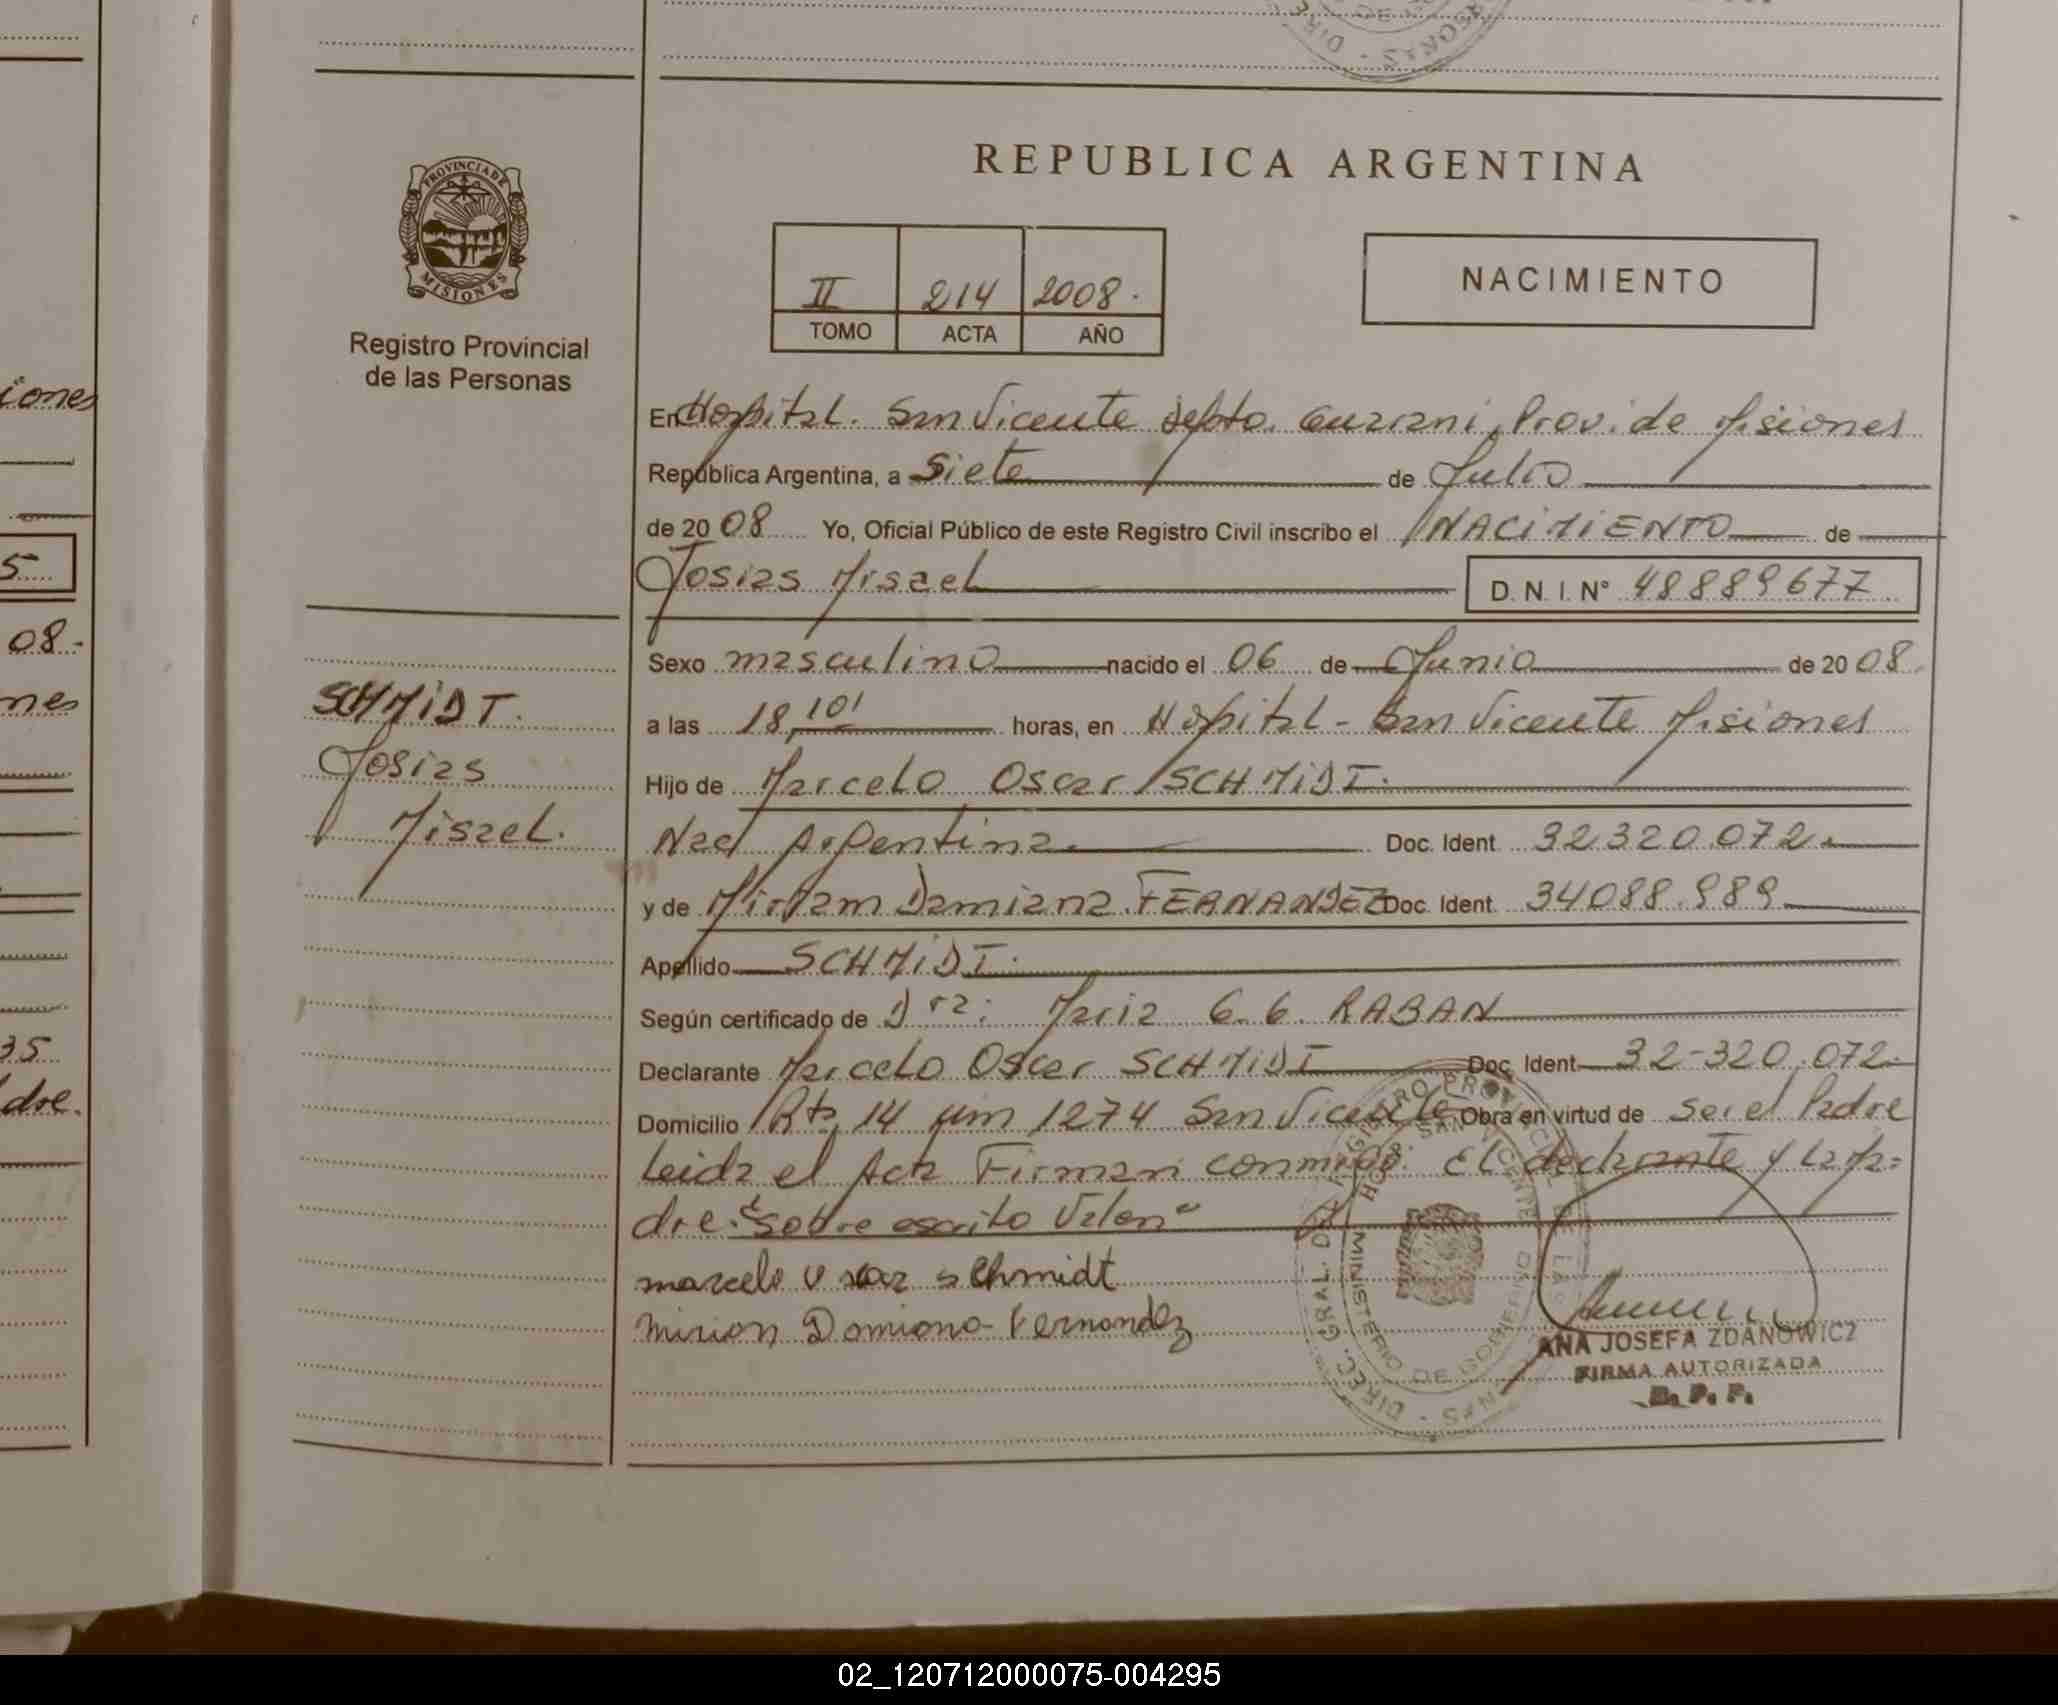 REPUBLICA ARGENTINA
PROVINCIA DE
MISIONES
Registro Provincial
de las Personas
II 214 2008.
TOMO ACTA AÑO
NACIMIENTO
En Hospital. San Vicente Depto. Guarani, Prov. de Misiones
República Argentina, a Siete de Julio
de 20 08 Yo, Oficial Público de este Registro Civil inscribo el NACIMIENTO de
Josias Misael D.N.I. N° 48889677
Sexo masculino nacido el 06 de Junio de 20 08.
a las 18,10' horas, en Hospital - San Vicente Misiones
Hijo de Marcelo Oscar SCHMIDT.
Nac Argentina. Doc. Ident. 32.320.072.
y de Miriam Damiana FERNANDEZ Doc. Ident. 34088.989
Apellido SCHMIDT.
Según certificado de Dra: Maria G. G. RABAN
Declarante Marcelo Oscar SCHMIDT Doc. Ident 32-320.072.
Domicilio Rta 14 km 1274 San Vicente Obra en virtud de ser el Padre
Leida el Acta Firman conmigo: El declarante y la Ma=
dre. "sobre escrito Valen"
marcelo oscar schmidt
Mirian Damiana Fernandez
SCHMIDT.
Josias
Misael.
ANA JOSEFA ZDANOWICZ
FIRMA AUTORIZADA
R. P. P.
iones
5
08.
nes
35
dre.
02_120712000075-004295